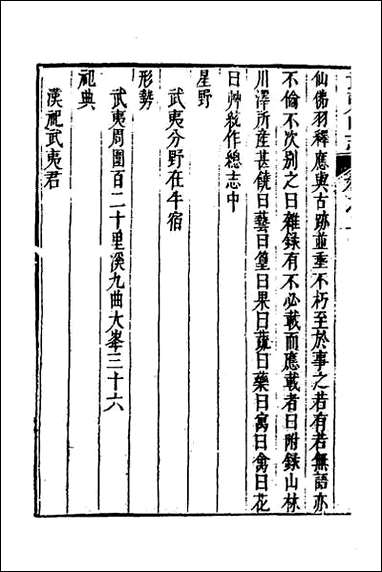 仙佛羽釋應與古跡並垂不朽至於事之若有若無語亦
不倫不次別之曰雜録有不必載而應載者曰附録山林
川澤所産甚饒曰藝曰篁曰果曰蔬曰藥曰禽曰花
曰艸敘作總志中
星野
武夷分野在牛宿
形勢
武夷周圍百二十里溪九曲大峯三十六
祀典
漢祀武夷君